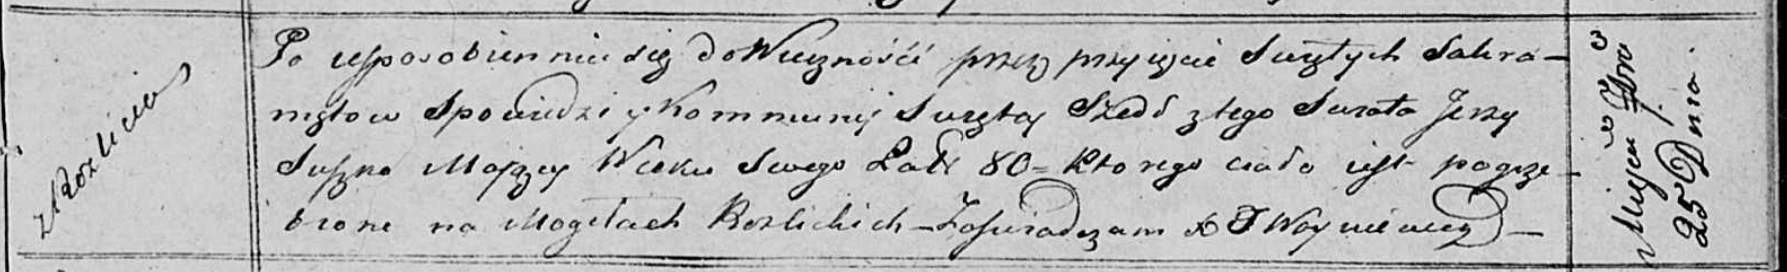 z Rozlicia
Po usposobienniu się do Wieczności przez przyięcie Swiętych Sakra-
mętow Spowiedzi y Kommunij Swiętey Szedł z tego Swiata Jerzy
Suszko Maiący Wieku Swego Latt 80 = Ktorego ciało iest pogrze-
bione na Mogiłach Rozlickich - Zaswiadczam X J Woyniewicz -
Miesca
25 Dnia.